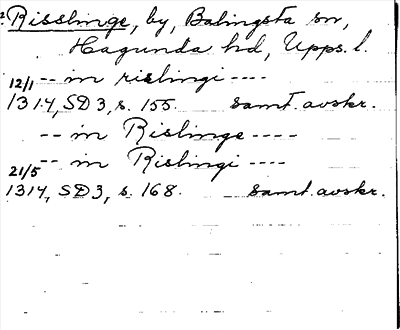 Risslinge, by, Balingsta sn,
Hagunda hd, Upps. l.
-- in rislingi ----
12/1 1314, SD 3, s. 155. samt. avskr.
-- in Rislinge ----
-- in Rislingi ----
21/5 1314, SD 3, s. 168. samt. avskr.